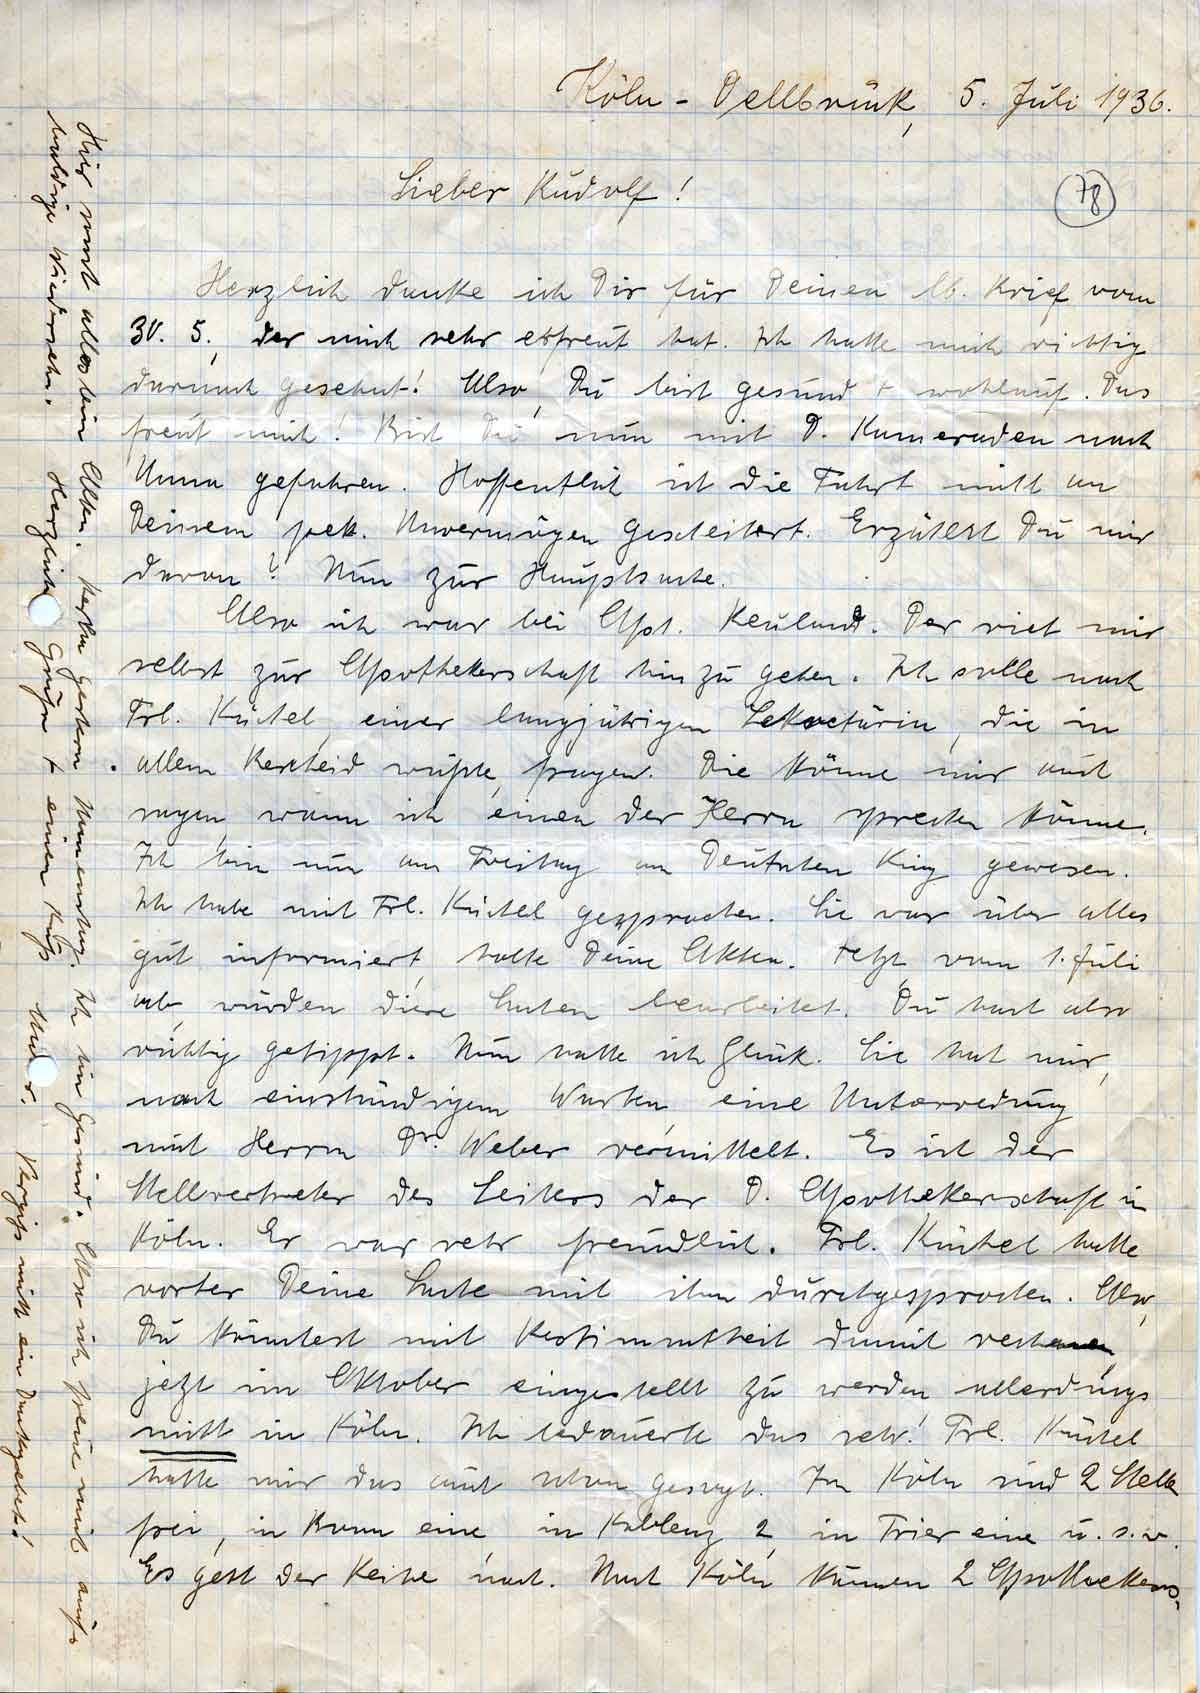 Köln - Dellbrück, 5. Juli 1936.
Lieber Rudolf!
78
Herzlich danke ich Dir für Deinen lb. Brief vom
30. 5., der mich sehr erfreut hat. Ich hatte mich richtig
darnach gesehnt! Also, Du bist gesund + wohlauf. Das
freut mich! Bist Du nun mit D. Kameraden nach
Unna gefahren. Hoffentlich ist die Fahrt nicht an
Deinem pek. Unvermögen gescheitert. Erzählst Du mir
davon? Nun zur Hauptsache.
Also ich war bei Apt. Der riet mir
selbst zur Apothekerschaft hin zu gehen. Ich solle nach
Frl. Küchel, einer langjährigen Sekretärin, die in
allem Bescheid wußte, fragen. Die könne mir auch
sagen, wann ich einen der Herrn sprechen könne.
Ich bin nun am Freitag am Deutschen Ring gewesen.
Ich habe mit Frl. Küchel gesprochen. Sie war über alles
gut informiert, holte Deine Akten. Jetzt vom 1. Juli
ab, würden diese Sachen bearbeitet. Du hast also
richtig getippt. Nun hatte ich Glück. Sie hat mir,
nach einstündigem Warten, eine Unterredung
mit Herrn Dr. Weber vermittelt. Es ist der
Stellvertreter des Leiters der D. Apothekerschaft in
Köln. Er war sehr freundlich. Frl. Küchel hatte
vorher Deine Sache mit ihm durchgesprochen. Also,
Du könntest mit Bestimmtheit damit rechnen,
jetzt im Oktober eingestellt zu werden, allerdings
nicht in Köln. Ich bedauerte das sehr! Frl. Küchel
hatte mir das auch schon gesagt. In Köln sind 2 Stellen
frei, in Bonn eine, in Koblenz 2, in Trier eine u. s. w.
Es geht der Reihe nach. Nach Köln kommen 2 Apothekers-
Hier sonst alles beim Alten. gestern Namenstag. Ich bin gesund. Also ich freue mich auf
baldige Wiedersehn. Herzliche Grüße + einen Kuß Mutter. Vergiß nicht ein Dankgebet!